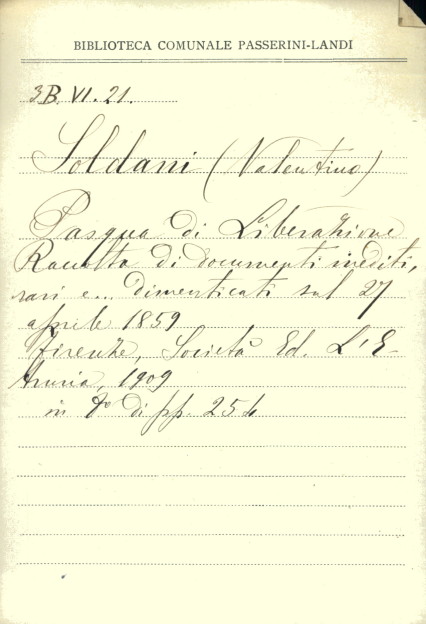 BIBLIOTECA COMUNALE PASSERINI-LANDI
3B. VI. 21.
Soldani (Valentino)
Pasqua di Liberazione
Raccolta di documenti inediti,
rari e... dimenticati sul 27
aprile 1859
Firenze, Società Ed. L'E-
truria, 1909
in 8° di pp. 254